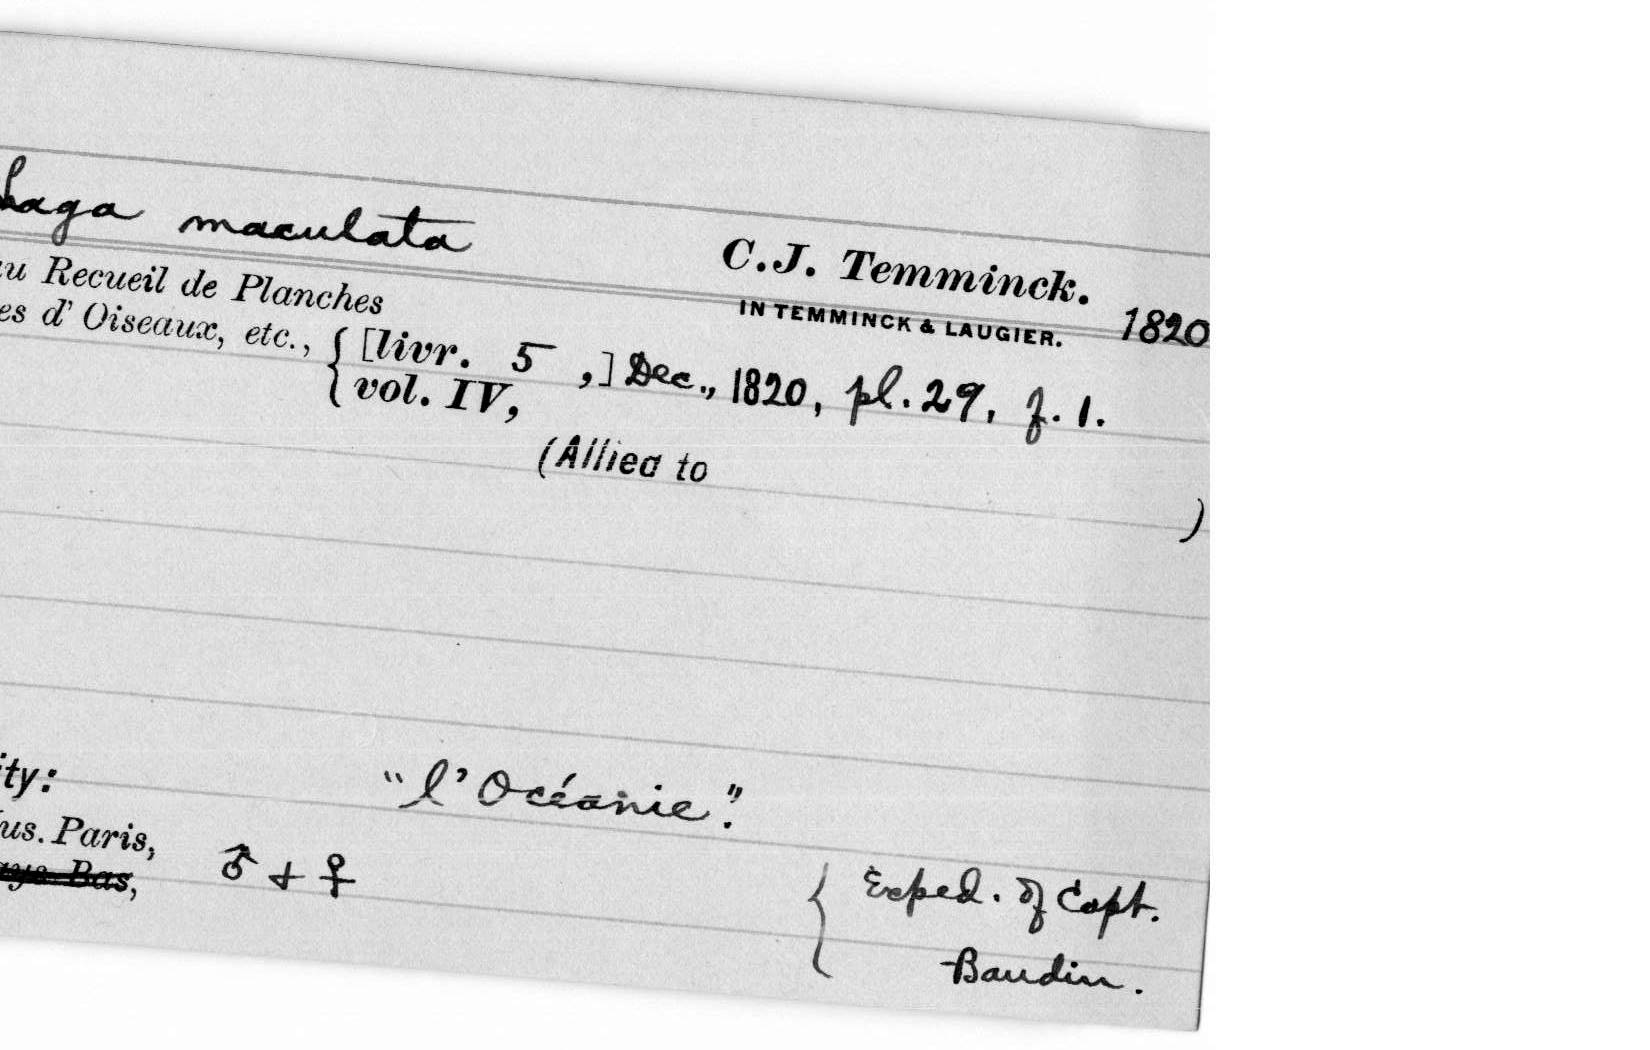 haga maculata
C.J. Temminck.
IN TEMMINCK & LAUGIER. 1820
u Recueil de Planches
es d'Oiseaux, etc., { [livr. 5 ,] Dec., 1820, pl. 29, f. 1.
vol. IV,
(Allied to )
ity: "l'Océanie".
us. Paris,
ays-Bas, ♂ + ♀
{ Exped. of Capt.
Baudin.